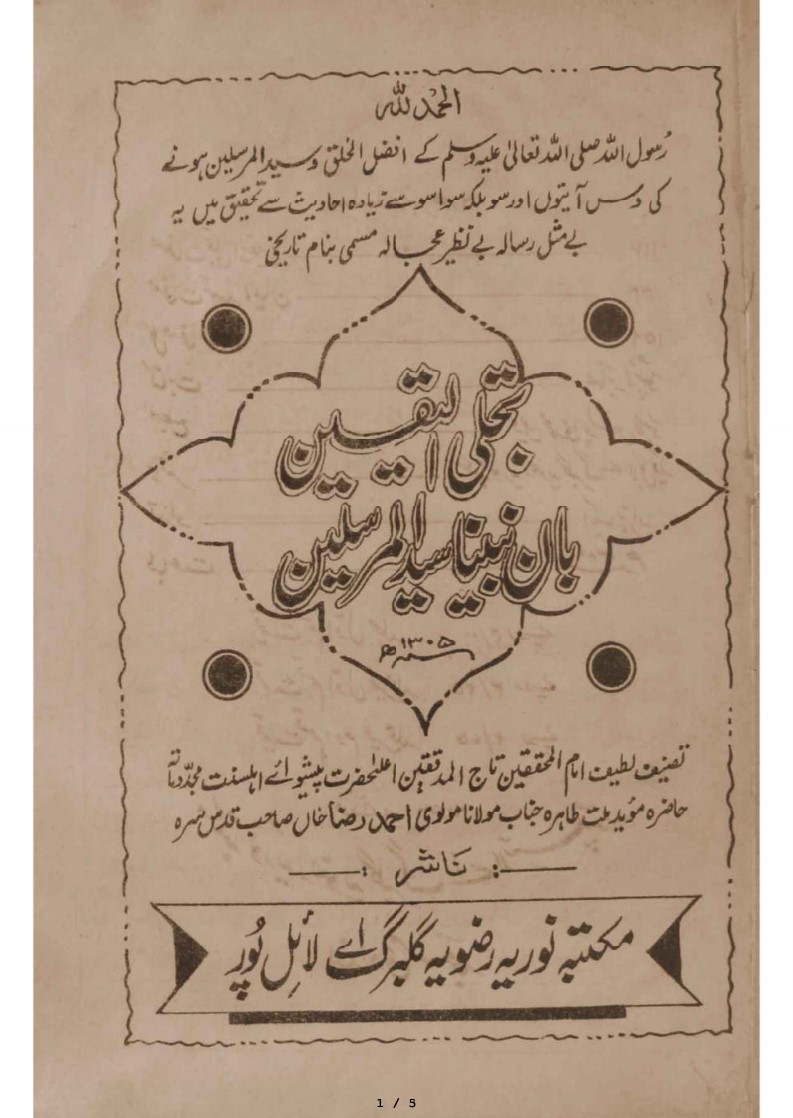 الحمد للہ
رسول اللہ صلی اللہ تعالیٰ علیہ وسلم کے افضل الخلق و سید المرسلین ہونے
کی دس آیتوں اور سو بلکہ سوا سو سے زیادہ احادیث سے تحقیق میں یہ
بے مثل رسالہ بے نظیر عجالہ مسمی بنام تاریخی
تجلی الیقین
بان نبینا سید المرسلین
۱۳۰۵ھ
تصنیف لطیف امام المحققین تاج المدققین اعلیٰحضرت پیشوائے اہلسنت مجدد مائۃ
حاضرہ مؤید ملت طاہرہ جناب مولانا مولوی احمد رضا خاں صاحب قدس سرہ
ناشر :
مکتبہ نوریہ رضویہ گلبرگ اے لائل پور
1 / 5